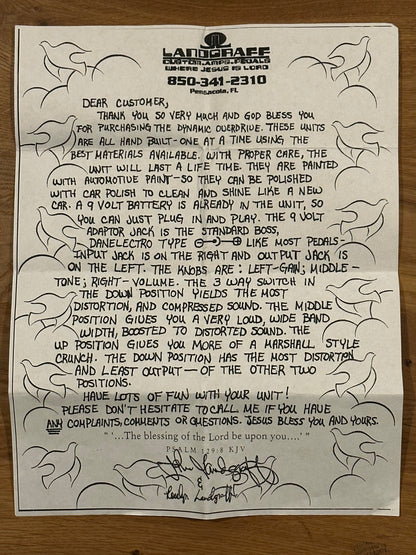 LANDGRAFF
CUSTOM.AMPS.PEDALS
WHERE JESUS IS LORD
850-341-2310
Pensacola, FL
DEAR CUSTOMER,
THANK YOU SO VERY MUCH AND GOD BLESS YOU
FOR PURCHASING THE DYNAMIC OVERDRIVE. THESE UNITS
ARE ALL HAND BUILT - ONE AT A TIME USING THE
BEST MATERIALS AVAILABLE. WITH PROPER CARE, THE
UNIT WILL LAST A LIFE TIME. THEY ARE PAINTED
WITH AUTOMOTIVE PAINT - SO THEY CAN BE POLISHED
WITH CAR POLISH TO CLEAN AND SHINE LIKE A NEW
CAR. A 9 VOLT BATTERY IS ALREADY IN THE UNIT, SO
YOU CAN JUST PLUG IN AND PLAY. THE 9 VOLT
ADAPTOR JACK IS THE STANDARD BOSS,
DANELECTRO TYPE LIKE MOST PEDALS-
INPUT JACK IS ON THE RIGHT AND OUTPUT JACK IS
ON THE LEFT. THE KNOBS ARE: LEFT-GAIN; MIDDLE-
TONE; RIGHT-VOLUME. THE 3 WAY SWITCH IN
THE DOWN POSITION YIELDS THE MOST
DISTORTION, AND COMPRESSED SOUND. THE MIDDLE
POSITION GIVES YOU A VERY LOUD, WIDE BAND
WIDTH, BOOSTED TO DISTORTED SOUND. THE
UP POSITION GIVES YOU MORE OF A MARSHALL STYLE
CRUNCH. THE DOWN POSITION HAS THE MOST DISTORTION
AND LEAST OUTPUT - OF THE OTHER TWO
POSITIONS.
HAVE LOTS OF FUN WITH YOUR UNIT!
PLEASE DON'T HESITATE TO CALL ME IF YOU HAVE
ANY COMPLAINTS, COMMENTS OR QUESTIONS. JESUS BLESS YOU AND YOURS.
"'...The blessing of the Lord be upon you....'"
PSALM 129:8 KJV
John Landgraff
&
Landgraff